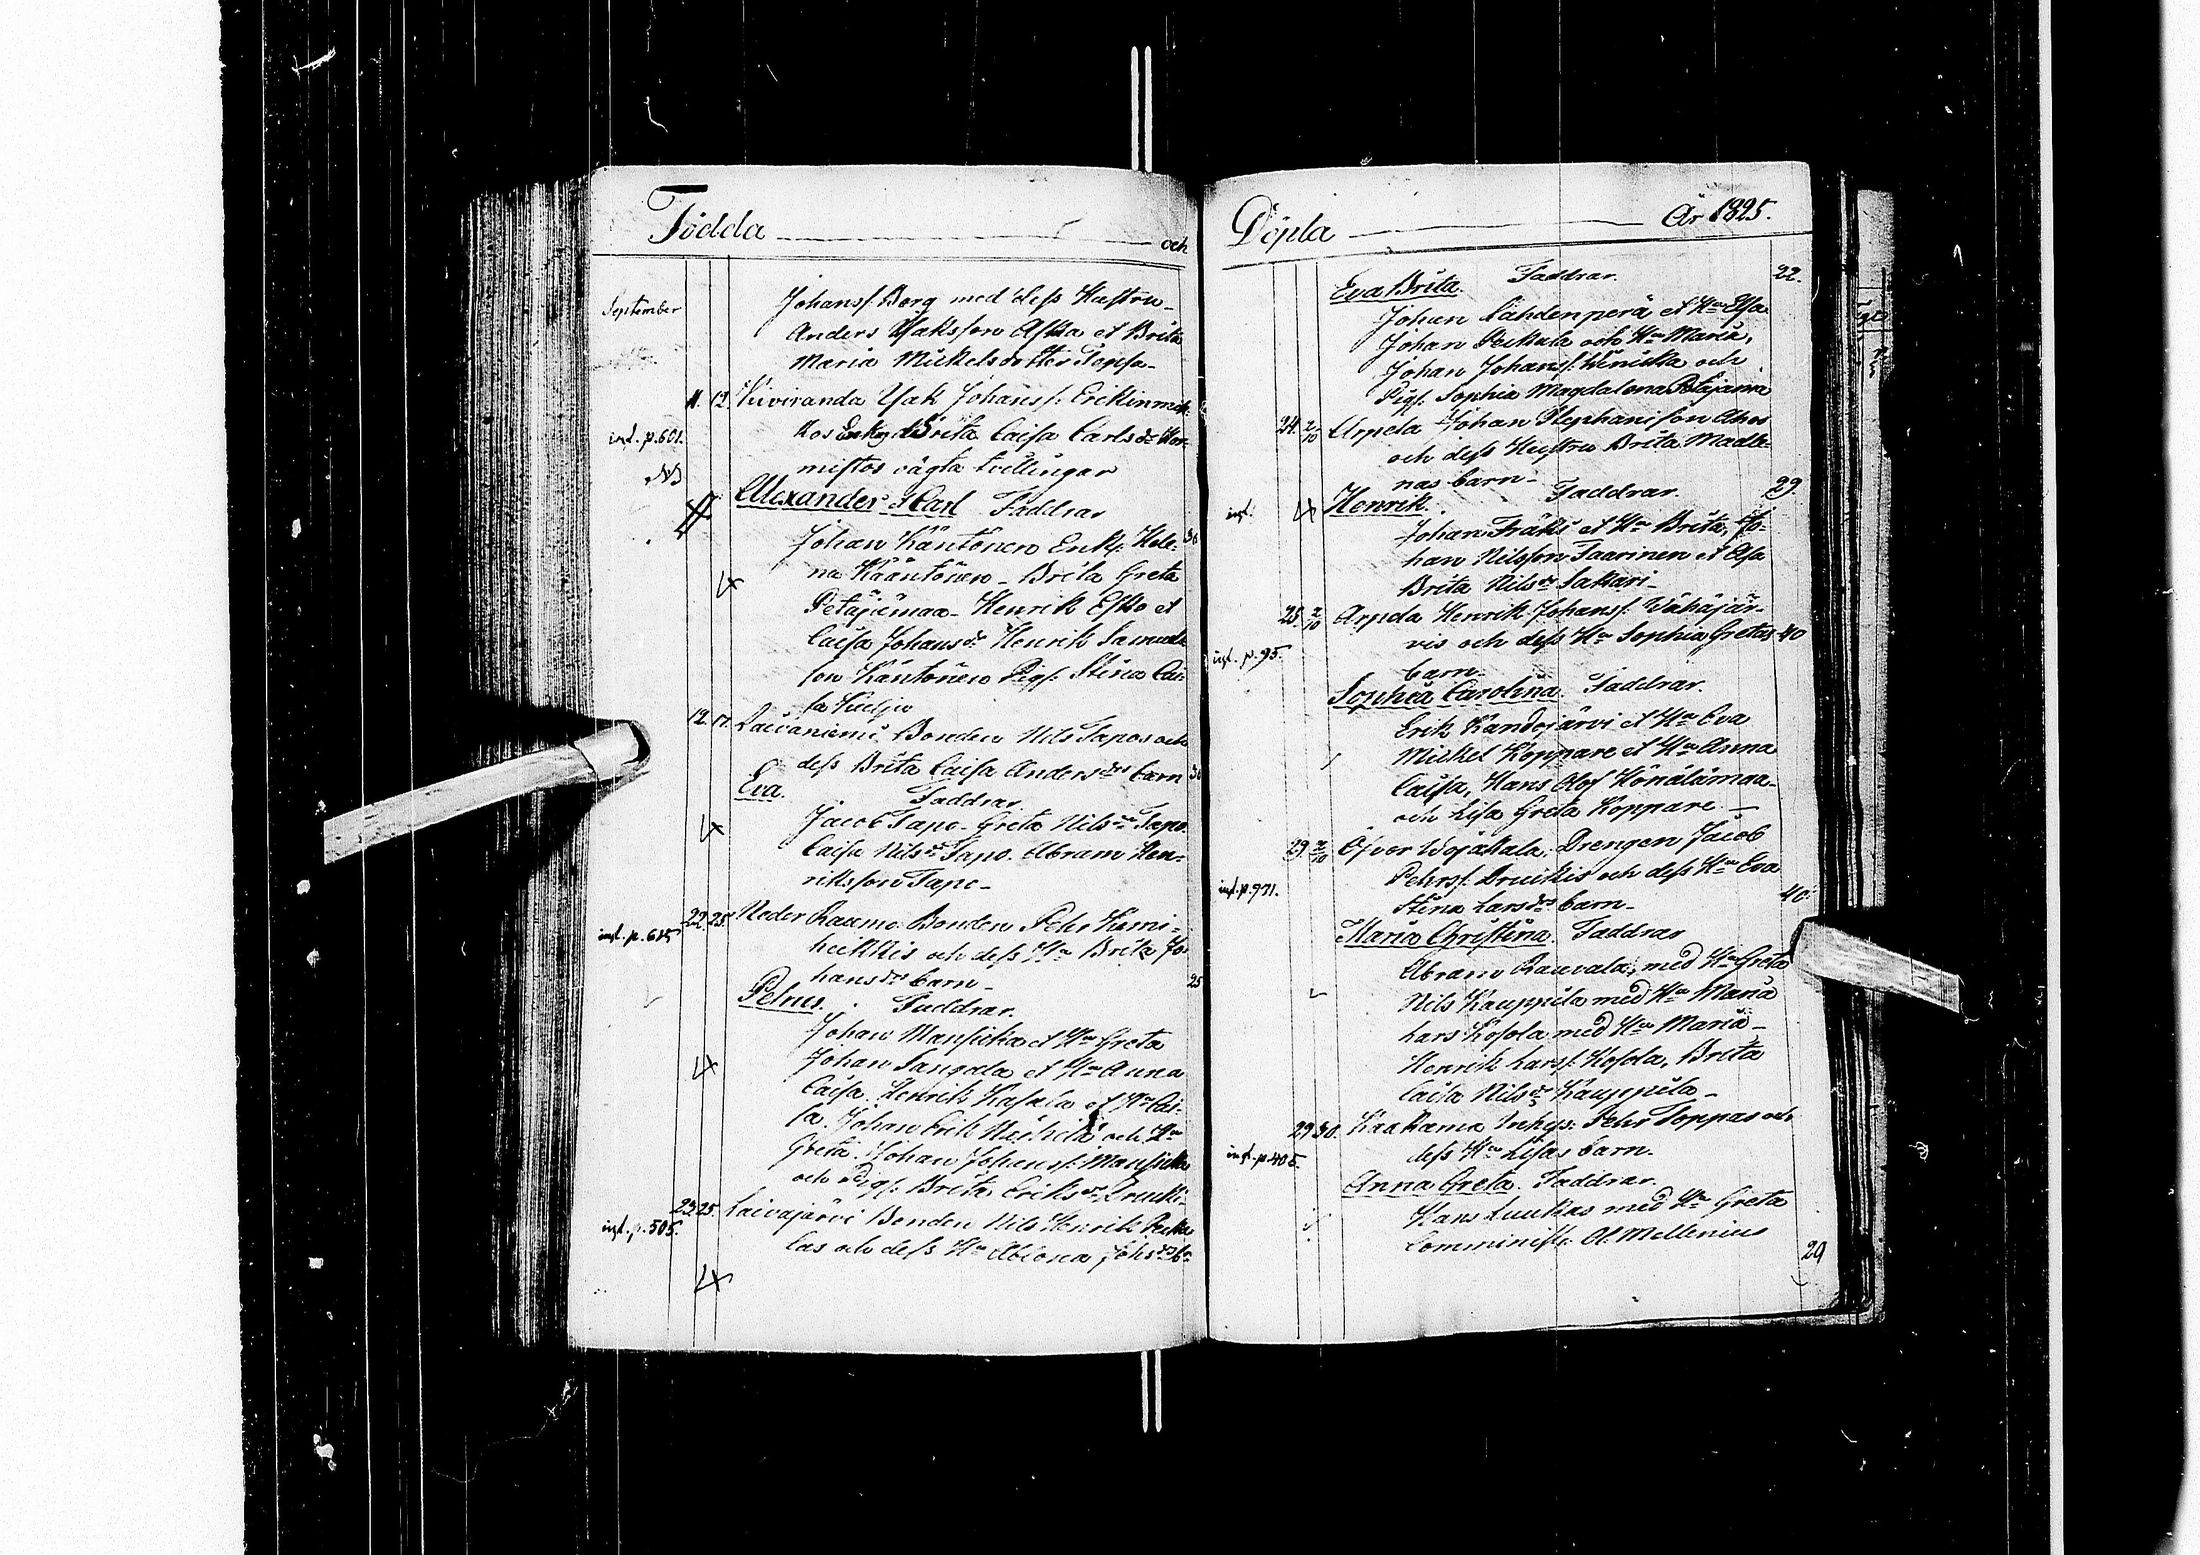 Födda och
September
Johans/. Borg med dess Hustru
Anders Isaksson Aska et Brita
Maria Mickelsdotter
11. 12. Viiviranda Isak Johans/. Erikinmik
inf. p. 601.
kos Brita Caisa Carlsdr
NB
mistos oägta tvillingar
Alexander et Carl Faddrar
Johan Käntönen Enk/. Hele= 30
na Kääntönen - Brita Greta
Petäjämaa - Henrik Esko et
Caisa Johansdr Henrik Samuels
son Käntönen Pig/. Stina Cai
sa
12. 17. Laivaniemi Bonden Nils Tapos och
dess Brita Caisa Andersdrs barn 30
Eva. Faddrar
Jacob Tapo - Greta Nilsdr Tapo
Caisa Nilsdr Tapo. Abram Hen=
riksson Tapo -
22. 25. Neder Raumo Bonden Pehr Kemi=
inf. p. 615
heikkis och dess Hu Brita Jo
hansdrs barn - 25
Petrus. Faddrar.
Johan Mansikka et Hu Greta
Johan Sangala et Hu Anna
Caisa. Henrik Kasala et Hu Cai=
sa. Johan Erik och Hu
Greta. Johan Johans/. Mansikka
och Pig/. Brita Eriksdr
23. 25. Laivajärvi Bonden Nils Henrik Pekka
inf. p. 505.
las och dess Hu Abiona Johsdrs bn
Döpta År 1825.
Eva Brita. Faddrar. 22.
Johan Lahdenperä et Hu Elsa
Johan Pekkala och Hu Maria,
Johan Johans/. och
Pig/. Sophia Magdalena Petäjamaa
24. 2/10 Arpela Johan Stephanisson Ahos
och dess Hustru Brita Madle=
nas barn -
inf. Henrik. Faddrar. 29.
Johan Fräki et Hu Brita, Jo=
han Nilsson Taarinen et Elsa
Brita Nilsdr Sakkari -
25. 2/10 Arpela Henrik Johans/. Vähäjär=
vis och dess Hu Sophia Gretas 40
inf. p. 95.
barn -
Sophia Carolina. Faddrar.
Erik Kandojärvi et Hu Eva
Mickel Koppare et Hu Anna
Caisa, Hans Olof Könölämaa
och Lisa Greta Koppare -
29. 2/10 Öfver Wojakala. Drengen Jacob
Pehrs/. Druikis och dess Hu Eva
inf. p. 971.
Stina Larsdrs barn - 40.
Maria Christina. Faddrar
Abram Rauvala, med Hu Greta
Nils Kauppila med Hu Maria
Lars Kosola med Hu Maria -
Henrik Lars/. Kosola, Brita
Caisa Nilsdr Kauppila -
29 30. Kaakama Inhys. Pehr Toppas och
inf. p. 405.
dess Hu Lisas barn.
Anna Greta. Faddrar.
Hans Luukas med Hu Greta
Comminist. Ol. Mellenius
29